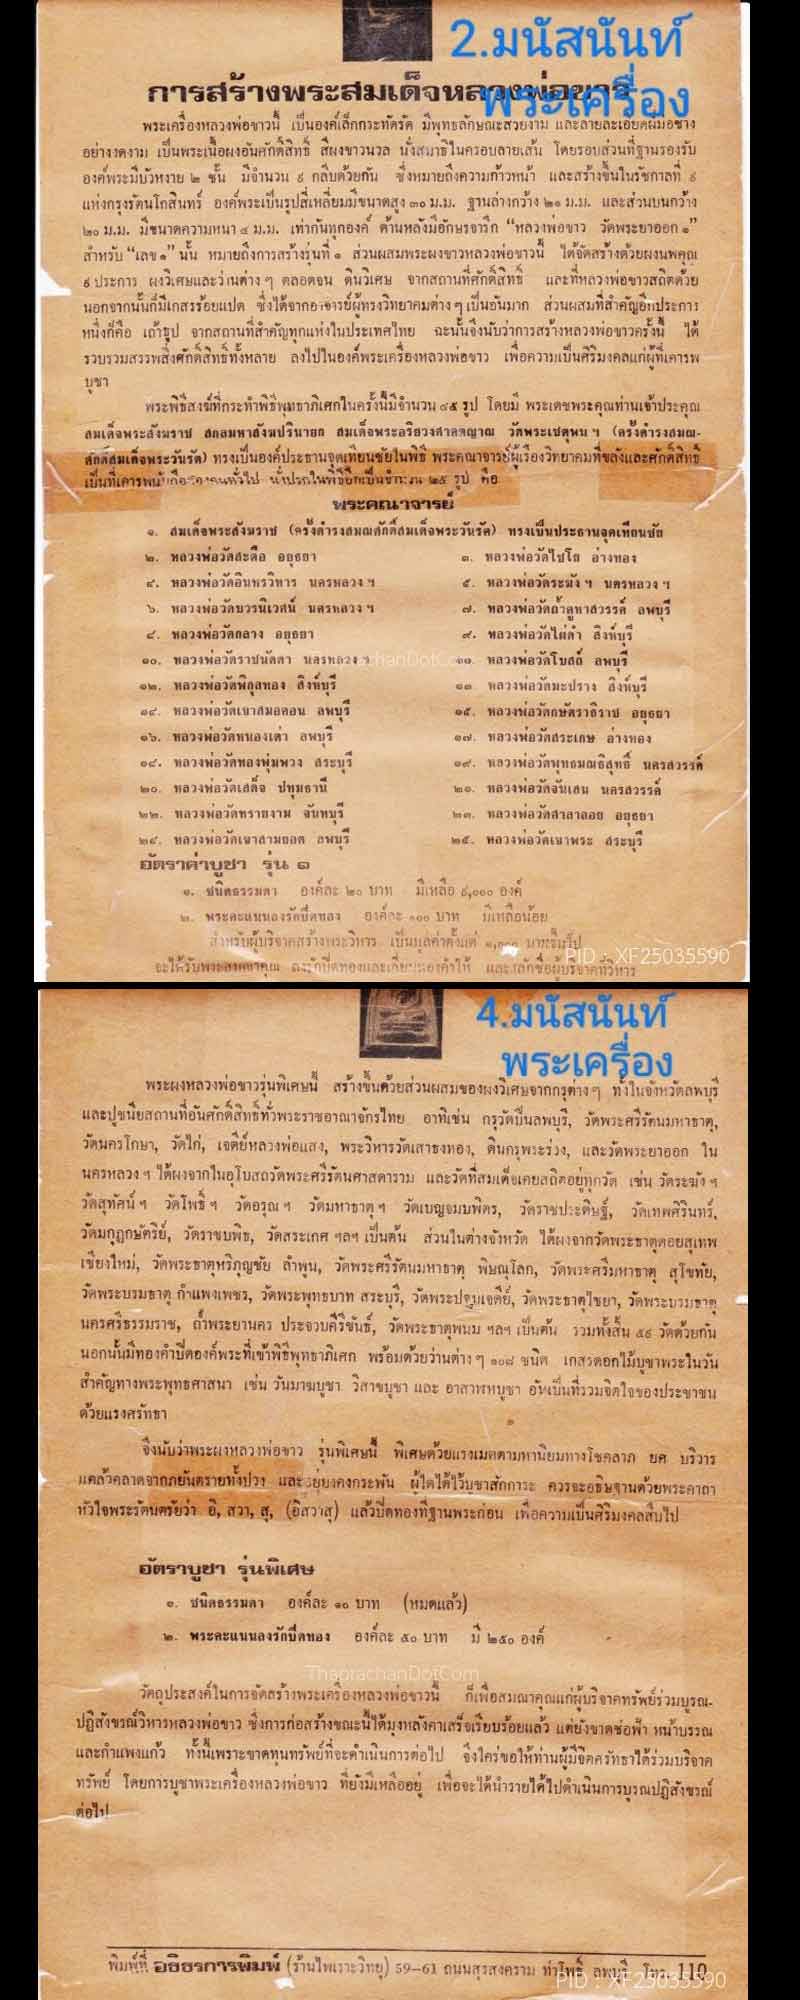 2.มนัสนันท์
พระเครื่อง
การสร้างพระสมเด็จหลวงพ่อขาว
พระเครื่องหลวงพ่อขาวนี้ เป็นองค์เล็กกระทัดรัด มีพุทธลักษณะสวยงาม และลายละเอียดฝีมือช่าง
อย่างงดงาม เป็นพระเนื้อผงอันศักดิ์สิทธิ์ สีผงขาวนวล นั่งสมาธิในครอบลายเส้น โดยรอบส่วนที่ฐานรองรับ
องค์พระมีบัวหงาย ๒ ชั้น มีจำนวน ๙ กลีบด้วยกัน ซึ่งหมายถึงความก้าวหน้า และสร้างขึ้นในรัชกาลที่ ๙
แห่งกรุงรัตนโกสินทร์ องค์พระเป็นรูปสี่เหลี่ยมมีขนาดสูง ๓๐ ม.ม. ฐานล่างกว้าง ๒๑ ม.ม. และส่วนบนกว้าง
๒๐ ม.ม. มีขนาดความหนา ๔ ม.ม. เท่ากันทุกองค์ ด้านหลังมีอักษรจารึก “หลวงพ่อขาว วัดพระยาออก ๑”
สำหรับ “เลข ๑” นั้น หมายถึงการสร้างรุ่นที่ ๑ ส่วนผสมพระผงขาวหลวงพ่อขาวนี้ ได้จัดสร้างด้วยผงนพคุณ
๙ ประการ ผงวิเศษและว่านต่าง ๆ ตลอดจน ดินวิเศษ จากสถานที่ศักดิ์สิทธิ์ และที่หลวงพ่อขาวสถิตด้วย
นอกจากนั้นก็มีเกสรร้อยแปด ซึ่งได้จากอาจารย์ผู้ทรงวิทยาคมต่าง ๆ เป็นอันมาก ส่วนผสมที่สำคัญอีกประการ
หนึ่งก็คือ เถ้าธูป จากสถานที่สำคัญทุกแห่งในประเทศไทย ฉะนั้นจึงนับว่าการสร้างหลวงพ่อขาวครั้งนี้ ได้
รวบรวมสรรพสิ่งศักดิ์สิทธิ์ทั้งหลาย ลงไปในองค์พระเครื่องหลวงพ่อขาว เพื่อความเป็นศิริมงคลแก่ผู้ที่เคารพ
บูชา
พระพิธีสงฆ์ที่กระทำพิธีพุทธาภิเศกในครั้งนี้มีจำนวน ๔๕ รูป โดยมี พระเดชพระคุณท่านเจ้าประคุณ
สมเด็จพระสังฆราช สกลมหาสังฆปรินายก สมเด็จพระอริยวงศาคตญาณ วัดพระเชตุพน ฯ (ครั้งดำรงสมณ-
ศักดิ์สมเด็จพระวันรัต) ทรงเป็นองค์ประธานจุดเทียนชัยในพิธี พระคณาจารย์ผู้เรืองวิทยาคมที่ขลังและศักดิ์สิทธิ์
เป็นที่เคารพนับถือของคนทั่วไป นั่งปรกในพิธีอีกเป็นจำนวน ๒๕ รูป คือ
พระคณาจารย์
๑. สมเด็จพระสังฆราช (ครั้งดำรงสมณศักดิ์สมเด็จพระวันรัต) ทรงเป็นประธานจุดเทียนชัย
๒. หลวงพ่อวัดสะตือ อยุธยา ๓. หลวงพ่อวัดไชโย อ่างทอง
๔. หลวงพ่อวัดอินทรวิหาร นครหลวง ฯ ๕. หลวงพ่อวัดระฆัง ฯ นครหลวง ฯ
๖. หลวงพ่อวัดบวรนิเวศน์ นครหลวง ฯ ๗. หลวงพ่อวัดถ้ำคูหาสวรรค์ ลพบุรี
๘. หลวงพ่อวัดกลาง อยุธยา ๙. หลวงพ่อวัดไผ่ดำ สิงห์บุรี
๑๐. หลวงพ่อวัดราชนัดดา นครหลวง ฯ ๑๑. หลวงพ่อวัดโบสถ์ ลพบุรี
๑๒. หลวงพ่อวัดพิกุลทอง สิงห์บุรี ๑๓. หลวงพ่อวัดมะปราง สิงห์บุรี
๑๔. หลวงพ่อวัดเขาสมอคอน ลพบุรี ๑๕. หลวงพ่อวัดกษัตราธิราช อยุธยา
๑๖. หลวงพ่อวัดหนองเต่า ลพบุรี ๑๗. หลวงพ่อวัดสระเกษ อ่างทอง
๑๘. หลวงพ่อวัดทองพุ่มพวง สระบุรี ๑๙. หลวงพ่อวัดพุทธมณธิสุทธิ์ นครสวรรค์
๒๐. หลวงพ่อวัดเสด็จ ปทุมธานี ๒๑. หลวงพ่อวัดจันเสน นครสวรรค์
๒๒. หลวงพ่อวัดทรายงาม จันทบุรี ๒๓. หลวงพ่อวัดศาลาลอย อยุธยา
๒๔. หลวงพ่อวัดเขาสามยอด ลพบุรี ๒๕. หลวงพ่อวัดเขาพระ สระบุรี
อัตราค่าบูชา รุ่น ๑
๑. ชนิดธรรมดา องค์ละ ๒๐ บาท มีเหลือ ๙,๐๐๐ องค์
๒. พระคะแนนลงรักปิดทอง องค์ละ ๑๐๐ บาท มีเหลือน้อย
สำหรับผู้บริจาคสร้างพระวิหาร เป็นมูลค่าตั้งแต่ ๑,๐๐๐ บาทขึ้นไป
จะได้รับพระสมนาคุณ ลงรักปิดทองและเลี่ยมทองคำให้ และสลักชื่อผู้บริจาคที่วิหาร
PID : XF25035590
4.มนัสนันท์
พระเครื่อง
พระผงหลวงพ่อขาวรุ่นพิเศษนี้ สร้างขึ้นด้วยส่วนผสมของผงวิเศษจากกรุต่าง ๆ ทั้งในจังหวัดลพบุรี
และปูชนียสถานที่อันศักดิ์สิทธิ์ทั่วพระราชอาณาจักรไทย อาทิเช่น กรุวัดปืนลพบุรี, วัดพระศรีรัตนมหาธาตุ,
วัดนครโกษา, วัดไก่, เจดีย์หลวงพ่อแสง, พระวิหารวัดเสาธงทอง, ดินกรุพระร่วง, และวัดพระยาออก ใน
นครหลวง ฯ ได้ผงจากในอุโบสถวัดพระศรีรัตนศาสดาราม และวัดที่สมเด็จเคยสถิตอยู่ทุกวัด เช่น วัดระฆัง ฯ
วัดสุทัศน์ ฯ วัดโพธิ์ ฯ วัดอรุณ ฯ วัดมหาธาตุ ฯ วัดเบญจมบพิตร, วัดราชประดิษฐ์, วัดเทพศิรินทร์,
วัดมกุฎกษัตริย์, วัดราชบพิธ, วัดสระเกศ ฯลฯ เป็นต้น ส่วนในต่างจังหวัด ได้ผงจากวัดพระธาตุดอยสุเทพ
เชียงใหม่, วัดพระธาตุหริภุญชัย ลำพูน, วัดพระศรีรัตนมหาธาตุ พิษณุโลก, วัดพระศรีมหาธาตุ สุโขทัย,
วัดพระบรมธาตุ กำแพงเพชร, วัดพระพุทธบาท สระบุรี, วัดพระปฐมเจดีย์, วัดพระธาตุไชยา, วัดพระบรมธาตุ
นครศรีธรรมราช, ถ้ำพระยานคร ประจวบคีรีขันธ์, วัดพระธาตุพนม ฯลฯ เป็นต้น รวมทั้งสิ้น ๕๙ วัดด้วยกัน
นอกนั้นมีทองคำปิดองค์พระที่เข้าพิธีพุทธาภิเศก พร้อมด้วยว่านต่าง ๆ ๑๐๘ ชนิด เกสรดอกไม้บูชาพระในวัน
สำคัญทางพระพุทธศาสนา เช่น วันมาฆบูชา วิสาขบูชา และ อาสาฬหบูชา อันเป็นที่รวมจิตใจของประชาชน
ด้วยแรงศรัทธา
จึงนับว่าพระผงหลวงพ่อขาว รุ่นพิเศษนี้ พิเศษด้วยแรงเมตตามหานิยมทางโชคลาภ ยศ บริวาร
แคล้วคลาดจากภยันตรายทั้งปวง และอยู่ยงคงกระพัน ผู้ใดได้ไว้บูชาสักการะ ควรจะอธิษฐานด้วยพระคาถา
หัวใจพระรัตนตรัยว่า อิ, สวา, สุ, (อิสวาสุ) แล้วปิดทองที่ฐานพระก่อน เพื่อความเป็นศิริมงคลสืบไป
อัตราบูชา รุ่นพิเศษ
๑. ชนิดธรรมดา องค์ละ ๑๐ บาท (หมดแล้ว)
๒. พระคะแนนลงรักปิดทอง องค์ละ ๕๐ บาท มี ๒๕๐ องค์
ThaprachanDotCom
วัตถุประสงค์ในการจัดสร้างพระเครื่องหลวงพ่อขาวนี้ ก็เพื่อสมณาคุณแก่ผู้บริจาคทรัพย์ร่วมบูรณ-
ปฏิสังขรณ์วิหารหลวงพ่อขาว ซึ่งการก่อสร้างขณะนี้ได้มุงหลังคาเสร็จเรียบร้อยแล้ว แต่ยังขาดช่อฟ้า หน้าบรรณ
และกำแพงแก้ว ทั้งนี้เพราะขาดทุนทรัพย์ที่จะดำเนินการต่อไป จึงใคร่ขอให้ท่านผู้มีจิตศรัทธาได้ร่วมบริจาค
ทรัพย์ โดยการบูชาพระเครื่องหลวงพ่อขาว ที่ยังมีเหลืออยู่ เพื่อจะได้นำรายได้ไปดำเนินการบูรณปฏิสังขรณ์
ต่อไป
พิมพ์ที่ อธิธรการพิมพ์ (ร้านไพเราะวิทยุ) 59–61 ถนนสุรสงคราม ท่าโพธิ์ ลพบุรี โทร. 110
PID : XF25035590